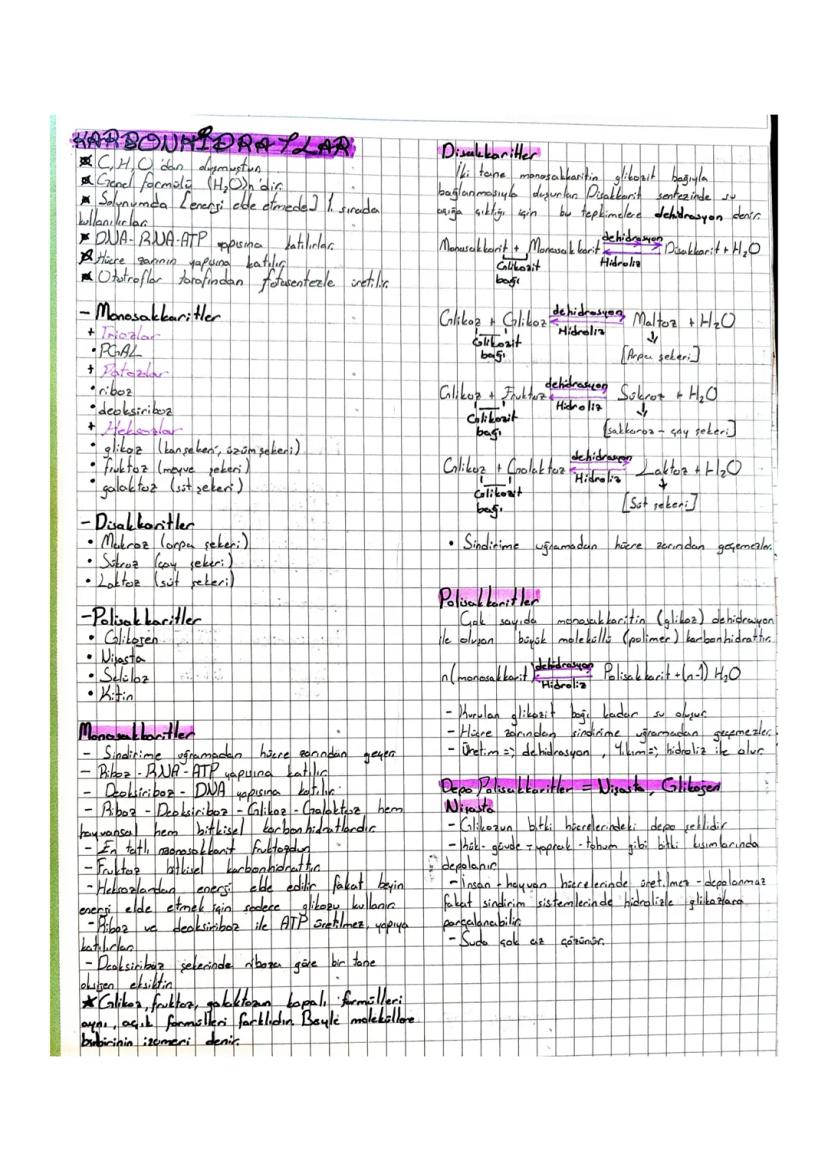 KARBONHİDRATLAR
* C, H, O 'dan oluşmuştur.
* Genel formülü (H₂O)n'dir.
* Solunumda [enerji elde etmede] 1. sırada
kullanılırlar.
* DNA-RNA-ATP yapısına katılırlar.
* Hücre zarının yapısına katılır.
* Ototroflar tarafından fotosentezle üretilir.
- Monosakkaritler
+ Triozlar
• PGAL
+ Patozlar
• riboz
• deoksiriboz
+ Heksozlar
• glikoz (kan şekeri, üzüm şekeri)
• fruktoz (meyve şekeri)
• galaktoz (süt şekeri)
- Disakkaritler
• Maltoz (arpa şekeri)
• Sükroz (çay şekeri)
• Laktoz (süt şekeri)
- Polisakkaritler
• Glikojen
• Nişasta
• Selüloz
• Kitin
Monosakkaritler
- Sindirime uğramadan hücre zarından geçer.
- Riboz - RNA - ATP yapısına katılır.
- Deoksiriboz - DNA yapısına katılır.
- Riboz - Deoksiriboz - Glikoz - Galaktoz hem
hayvansal hem bitkisel karbonhidratlardır.
- En tatlı monosakkarit fruktozdur.
- Fruktoz bitkisel karbonhidrattır.
- Heksozlardan enerji elde edilir fakat beyin
enerji elde etmek için sadece glikozu kullanır.
- Riboz ve deoksiriboz ile ATP üretilmez, yapıya
katılırlar.
- Deoksiriboz şekerinde riboza göre bir tane
oksijen eksiktir.
★ Glikoz, fruktoz, galaktozun kapalı formülleri
aynı, açık formülleri farklıdır. Böyle moleküllere
birbirinin izomeri denir.
Disakkaritler
İki tane monosakkaritin glikozit bağıyla
bağlanmasıyla oluşurlar. Disakkarit sentezinde su
açığa çıktığı için bu tepkimelere dehidrasyon denir.
Monosakkarit + Monosakkarit dehidrasyon Hidroliz Disakkarit + H₂O
Glikozit
bağı
Glikoz + Glikoz dehidrasyon Hidroliz Maltoz + H₂O
Glikozit
bağı
[Arpa şekeri]
Glikoz + Fruktoz dehidrasyon Hidroliz Sükroz + H₂O
Glikozit
bağı
[sakkaroz - çay şekeri]
Glikoz + Galaktoz dehidrasyon Hidroliz Laktoz + H₂O
Glikozit
bağı
[Süt şekeri]
• Sindirime uğramadan hücre zarından geçemezler.
Polisakkaritler
Çok sayıda monosakkaritin (glikoz) dehidrasyon
ile oluşan büyük moleküllü (polimer) karbonhidrattır.
n(monosakkarit) dehidrasyon Hidroliz Polisakkarit + (n-1) H₂O
- Kurulan glikozit bağı kadar su oluşur.
- Hücre zarından sindirime uğramadan geçemezler.
- Üretim => dehidrasyon, Yıkım => hidroliz ile olur.
Depo Polisakkaritler = Nişasta, Glikojen
Nişasta
- Glikozun bitki hücrelerindeki depo şeklidir.
- Kök - gövde - yaprak - tohum gibi bitki kısımlarında
depolanır.
- İnsan - hayvan hücrelerinde üretilmez - depolanmaz
fakat sindirim sistemlerinde hidrolizle glikozlara
parçalanabilir.
- Suda çok az çözünür.